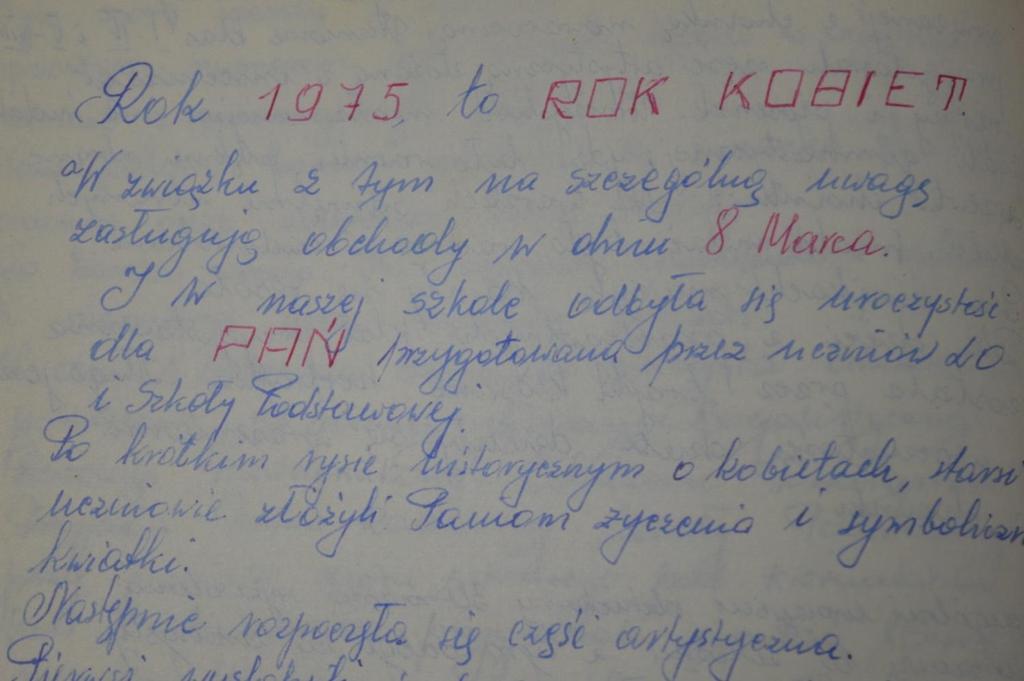 Rok 1975, to ROK KOBIET
W związku z tym na szczególną uwagę
zasługują obchody w dniu 8 Marca.
I w naszej szkole odbyła się uroczystość
dla PAŃ przygotowana przez uczniów LO
i Szkoły Podstawowej.
Po krótkim rysie historycznym o kobietach, starsi
uczniowie złożyli Paniom życzenia i symboliczn
kwiatki.
Następnie rozpoczęła się część artystyczna.